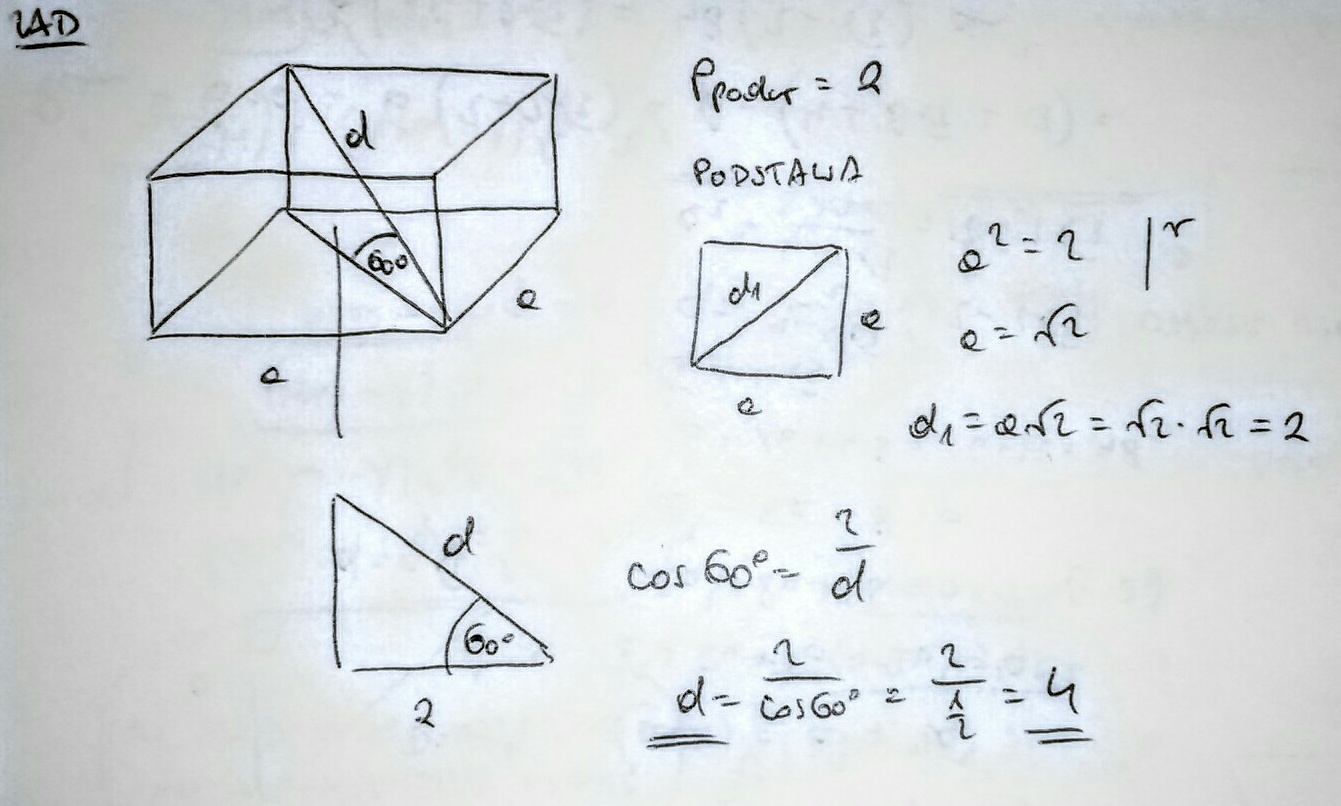 ZAD
d
60°
a
a
Ppodst = 2
PODSTAWA
d₁
a
a
a² = 2 |√
a = √2
d₁ = a√2 = √2 · √2 = 2
d
60°
2
cos 60° = 2/d
d = 2/cos60° = 2/(1/2) = 4